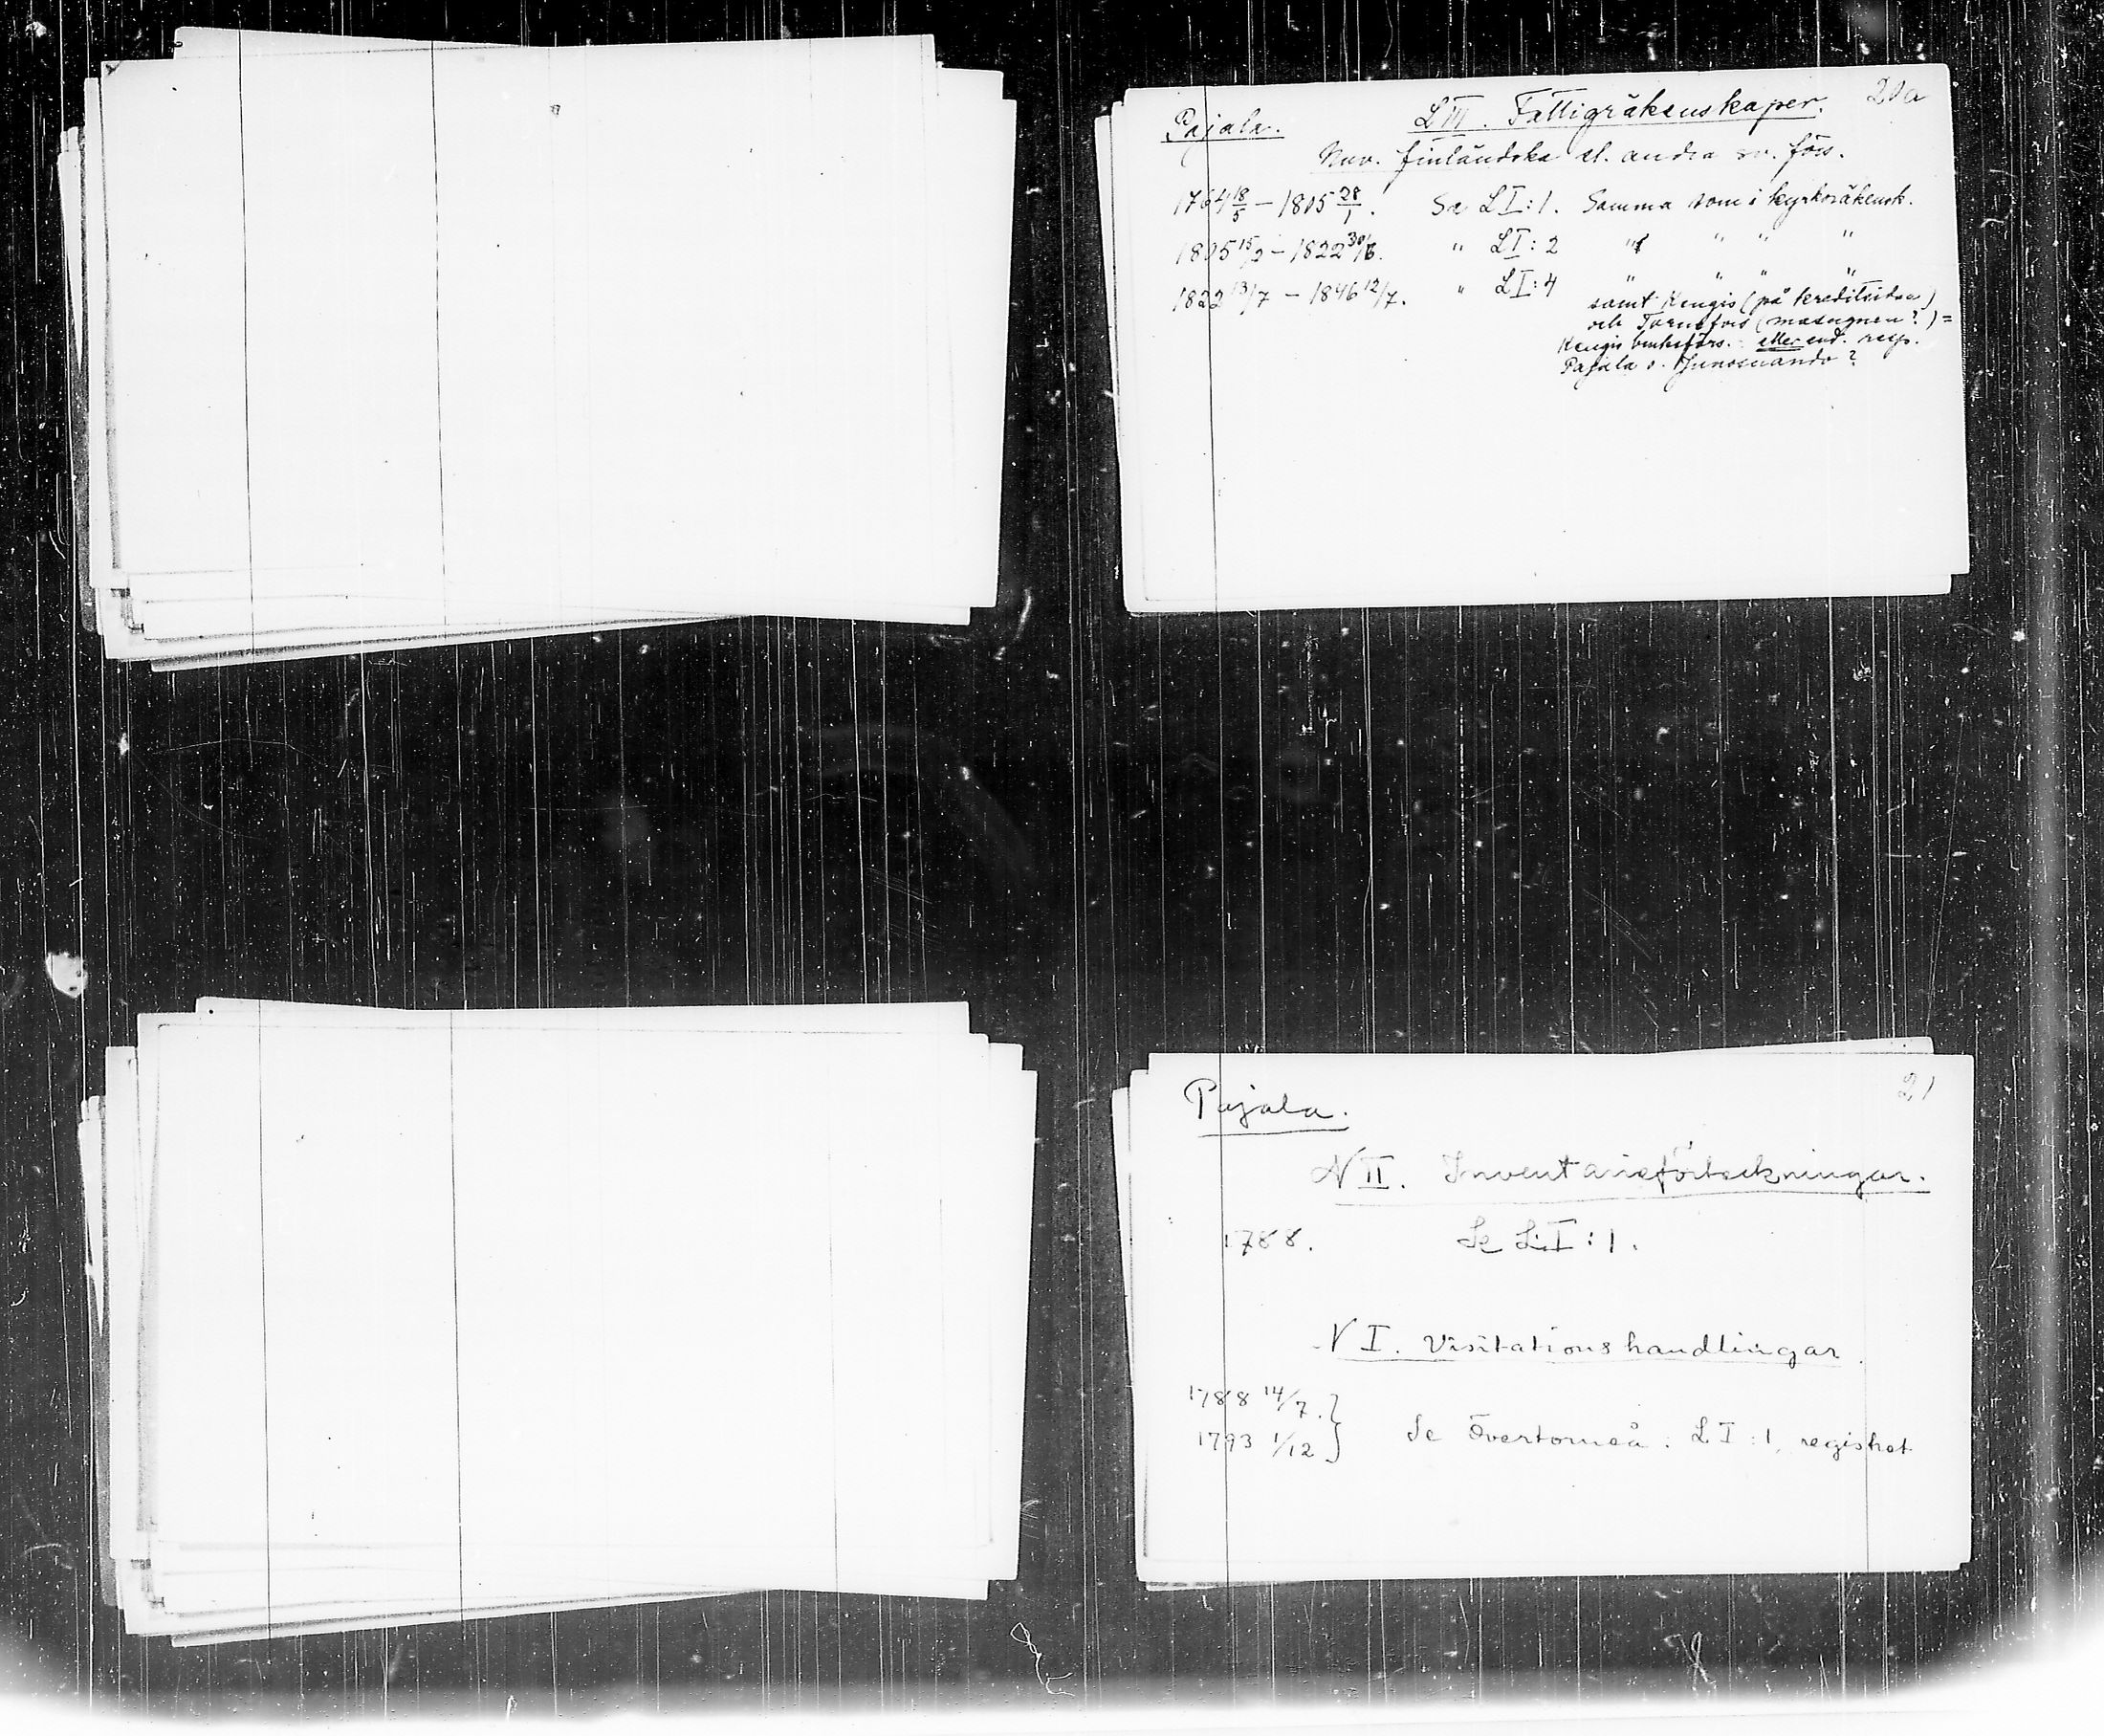 Pajala. L III. Fattigräkenskaper. 20a
Nuv. finländska el. andra sv. förs.
1764 18/5 – 1805 28/1. Se L I:1. Samma som i kyrkoräkensk.
1805 15/2 – 1822 30/6. " L I:2 " " " "
1822 13/7 – 1846 12/7. " L I:4 " " " "
samt Kengis (på kreditsidan)
och Tornefors (masugnen?) =
Kengis bruksförs. eller end. resp.
Pajala o. Junosuando?
Pajala. 21
N II. Inventarieförteckningar.
1788. Se L I:1.
N I. Visitationshandlingar
1788 14/7. }
1793 1/12 } Se Övertorneå: L I:1, registret